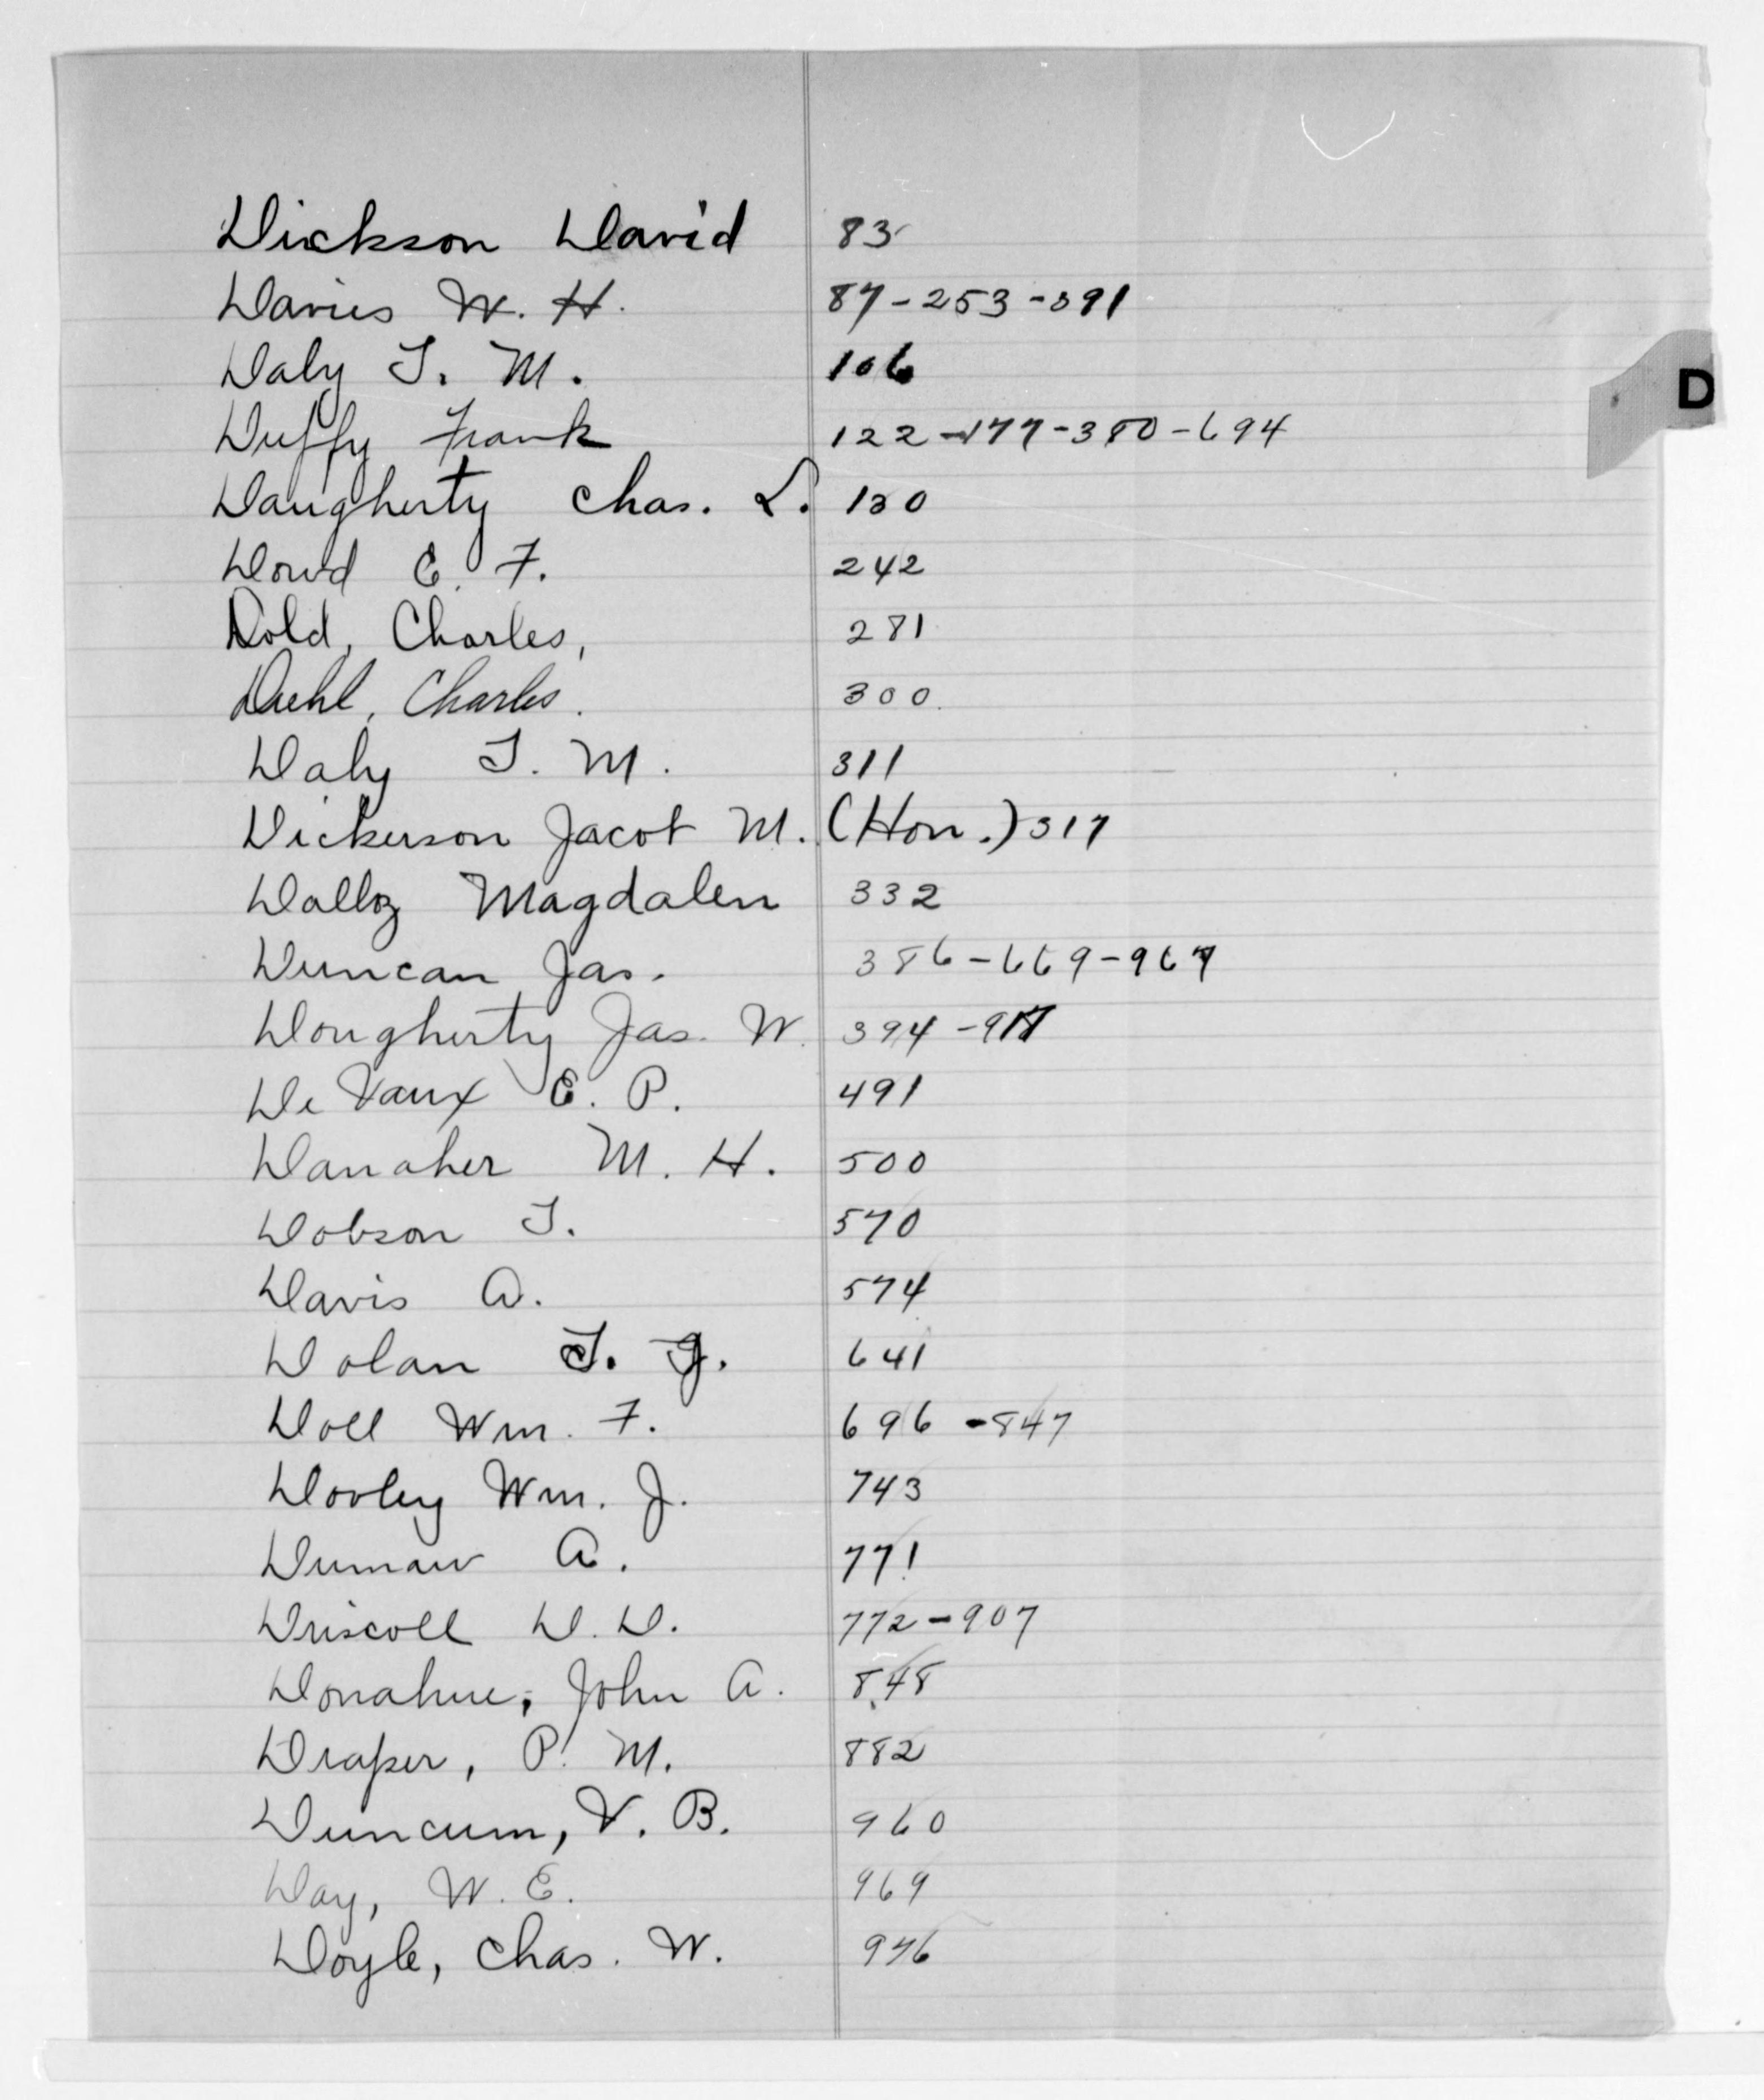 Dickson David 83
Davies W. H. 87-253-391
Daly T. M. 106
D
Duffy Frank 122-177-380-694
Daugherty Chas. L. 130
Dowd E. F. 242
Dold, Charles, 281
Diehl, Charles. 300.
Daly T. M. 311
Dickerson Jacob M. (Hon.) 317
Magdalen 332
Duncan Jas. 386-669-967
Dougherty Jas. W. 394
De Vaux E. P. 491
Danaher M. H. 500
Dobson T. 570
Davis A. 574
Dolan T. J. 641
Doll Wm. F. 696-847
Dooley Wm. J. 743
A. 771
Driscoll D. D. 772-907
Donahue, John A. 848
Draper, P. M. 882
Duncum, V. B. 960
Day, W. E. 969
Doyle, Chas. W. 976